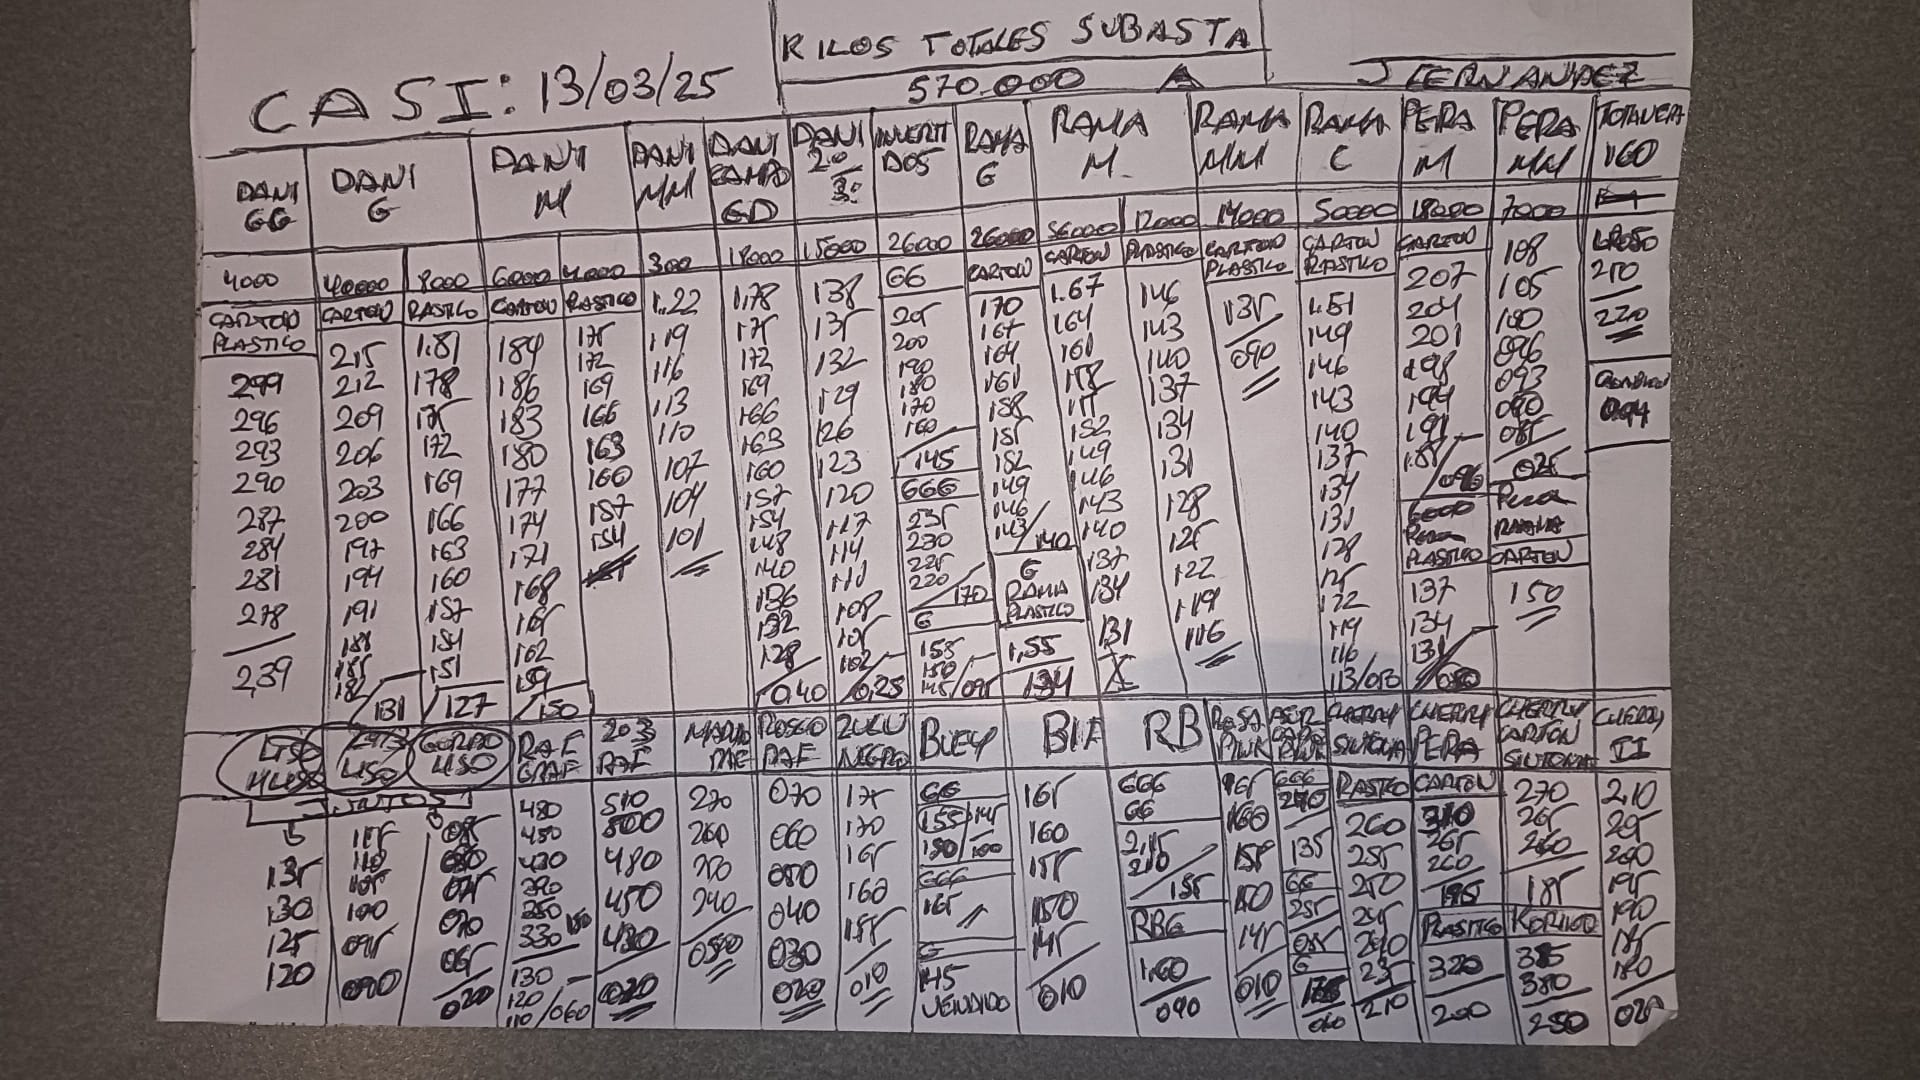 KILOS TOTALES SUBASTA
570.000 A
CASI: 13/03/25
J FERNANDEZ
DANI GG
4000
CARTON PLASTICO
299
296
293
290
287
284
281
278
239
DANI G
40000
CARTON
215
212
209
206
203
200
197
194
191
188
185
182
131
8000
PLASTICO
1.81
178
175
172
169
166
163
160
157
154
151
127
DANI M
6000
CARTON
184
186
183
180
177
174
171
168
165
162
159
150
4000
PLASTICO
175
172
169
166
163
160
157
154
DANI MM
300
1.22
119
116
113
110
107
104
101
DANI CAMPO GD
18000
1.78
175
172
169
166
163
160
157
154
148
140
136
132
128
0,40
DANI 2º 3º
15000
138
135
132
129
126
123
120
117
114
111
108
105
102
0,25
INVERTIDOS
26000
GG
205
200
190
180
170
160
145
GGG
235
230
225
220
170
G
158
150
145/095
RAMA G
26000
CARTON
170
167
164
161
158
155
152
149
146
143/140
G RAMA PLASTICO
1,55
134
RAMA M.
56000
CARTON
1.67
164
161
158
155
152
149
146
143
140
137
134
131
X
12000
PLASTICO
146
143
140
137
134
131
128
125
122
119
116
RAMA MM
14000
CARTON PLASTICO
135
090
RAMA C
50000
CARTON PLASTICO
1.51
149
146
143
140
137
134
131
128
125
122
119
116
113/050
PERA M
18000
CARTON
207
204
201
198
194
191
1.88
096
PLASTICO
137
134
131
PERA MM
7000
108
105
100
096
093
090
085
025
Pera
RAMA
CARTON
150
160
210
220
094
LISO
LISO
GORDO LISO
JUNTOS
135
130
125
120
115
110
105
100
095
090
085
080
075
070
065
020
RAF GRAF
480
450
400
390
350
330
130
120
110/060
203 RAF
510
500
480
450
430
020
270
260
250
240
0500
ROSCO RAF
070
060
050
040
030
020
ZULU NEGRO
175
170
165
160
155
010
BUEY
GG
155/145
150/100
GGG
165
G
145
VENDIDO
BIA
165
160
155
150
145
010
RB
GGG
GG
2,15
210
155
RBG
1,60
090
ROSA PINK
165
160
155
150
145
010
GGG
270
135
GG
255
085
G
060
CHERRY SINTONIA
PLASTICO
260
255
250
245
240
235
210
CHERRY PERA
CARTON
310
265
260
195
PLASTICO
320
200
CHERRY CARTON SINTONIA
270
265
260
185
KORINTO
385
380
250
CHERRY II
2,10
205
200
195
190
185
180
020